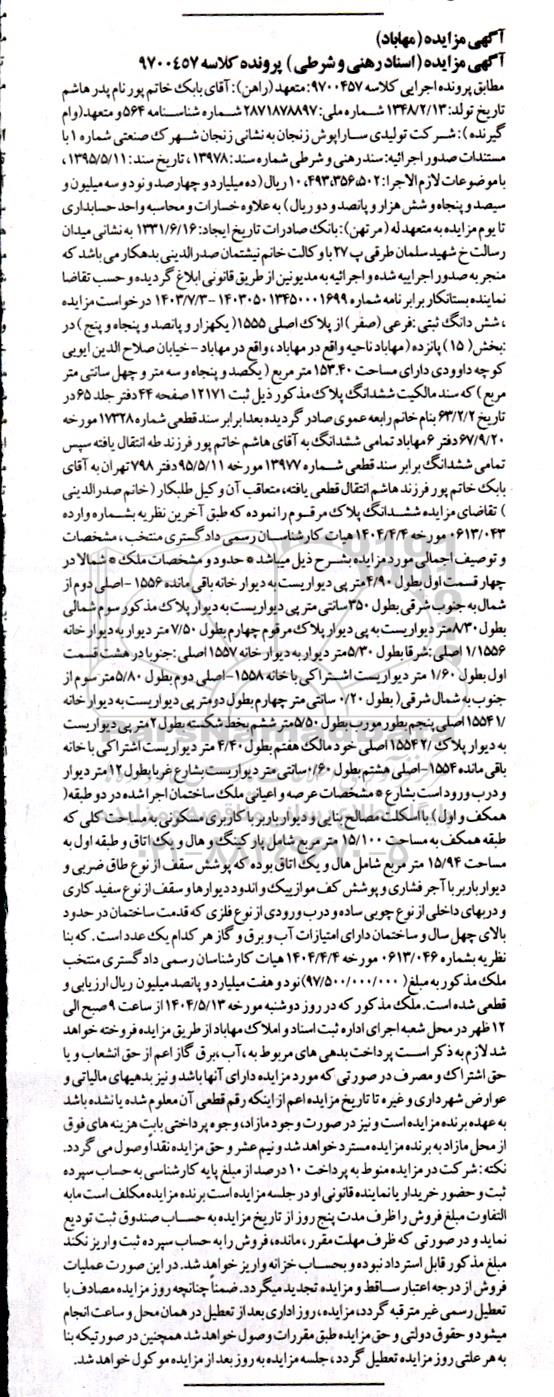 آگهی مزایده (مهاباد)
آگهی مزایده (اسناد رهنی و شرطی) پرونده کلاسه ۹۷۰۰۴۵۷
مطابق پرونده اجرایی کلاسه ۹۷۰۰۴۵۷: متعهد (راهن): آقای بابک خاتم پور نام پدر هاشم
تاریخ تولد: ۱۳۴۸/۲/۱۳ شماره ملی: ۲۸۷۱۸۷۸۸۹۷ شماره شناسنامه ۵۶۴ و متعهد (وام
گیرنده): شرکت تولیدی سارا پوش زنجان به نشانی زنجان شهرک صنعتی شماره ۱ با
مستندات صدور اجرائیه: سند رهنی و شرطی شماره سند: ۱۳۹۷۸، تاریخ سند: ۱۳۹۵/۵/۱۱،
با موضوعات لازم الاجرا: ۱۰،۴۹۳،۳۵۶،۵۰۲ ریال (ده میلیارد و چهارصد و نود و سه میلیون و
سیصد و پنجاه و شش هزار و پانصد و دو ریال) به علاوه خسارات و محاسبه واحد حسابداری
تا یوم مزایده به متعهد له (مرتهن): بانک صادرات تاریخ ایجاد: ۱۳۳۱/۶/۱۶ به نشانی میدان
رسالت خ شهید سلمان طرقی پ ۲۷ با وکالت خانم نیشتمان صدرالدینی بدهکار می باشد که
منجر به صدور اجراییه شده و اجرائیه به مدیونین از طریق قانونی ابلاغ گردیده و حسب تقاضا
نماینده بستانکار برابر نامه شماره ۱۴۰۳۰۵۰۱۳۴۵۰۰۰۱۶۹۹ -۱۴۰۳/۷/۳ درخواست مزایده
، شش دانگ ثبتی: فرعی (صفر) از پلاک اصلی ۱۵۵۵ (یکهزار و پانصد و پنجاه و پنج) در
:بخش (۱۵) پانزده (مهاباد ناحیه واقع در مهاباد، واقع در مهاباد -خیابان صلاح الدین ایوبی
کوچه داوودی دارای مساحت ۱۵۳.۴۰ متر مربع (یکصد و پنجاه و سه متر و چهل سانتی متر
مربع) که سند مالکیت ششدانگ پلاک مذکور ذیل ثبت ۱۲۱۷۱ صفحه ۴۴ دفتر جلد ۶۵ در
تاریخ ۶۳/۲/۲ بنام خانم رابعه عموی صادر گردیده بعدا برابر سند قطعی شماره ۱۷۳۲۸ مورخه
۶۷/۹/۲۰ دفتر ۶ مهاباد تمامی ششدانگ به آقای هاشم خاتم پور فرزند طه انتقال یافته سپس
تمامی ششدانگ برابر سند قطعی شماره ۱۳۹۷۷ مورخه ۹۵/۵/۱۱ دفتر ۷۹۸ تهران به آقای
بابک خاتم پور فرزند هاشم انتقال قطعی یافته، متعاقب آن وکیل طلبکار (خانم صدرالدینی
) تقاضای مزایده ششدانگ پلاک مرقوم را نموده که طبق آخرین نظریه بشماره وارده
۰۶۱۳/۰۴۳ مورخه ۱۴۰۴/۴/۴ هیات کارشناسان رسمی دادگستری منتخب، مشخصات
و توصیف اجمالی مورد مزایده بشرح ذیل میباشد * حدود و مشخصات ملک * شمالا در
چهار قسمت اول بطول ۴/۹۰ متر پی دیواریست به دیوار خانه باقی مانده ۱۵۵۶ -اصلی دوم از
شمال به جنوب شرقی بطول ۳۵۰ سانتی متر پی دیواریست به دیوار پلاک مذکور سوم شمالی
بطول ۸/۳۰ متر دیواریست به پی دیوار پلاک مرقوم چهارم بطول ۷/۵۰ متر دیوار به دیوار خانه
۱/۱۵۵۶ اصلی: شرقا بطول ۵/۳۰ متر دیوار به دیوار خانه ۱۵۵۷ اصلی: جنوبا در هشت قسمت
اول بطول ۱/۶۰ متر دیواریست اشتراکی با خانه ۱۵۵۸ -اصلی دوم بطول ۵/۸۰ متر سوم از
جنوب به شمال شرقی (بطول ۰/۲۰ سانتی متر چهارم بطول دو متر پی دیواریست به دیوار خانه
۱/۱۵۵۴ اصلی پنجم بطور مورب بطول ۵/۵۰ متر ششم بخط شکسته بطول ۲ متر پی دیواریست
به دیوار پلاک ۲/۱۵۵۴ اصلی خود مالک هفتم بطول ۴/۴۰ متر دیواریست اشتراکی با خانه
باقی مانده ۱۵۵۴ -اصلی هشتم بطول ۰/۶۰ سانتی متر دیواریست بشارع غربا بطول ۱۲ متر دیوار
و درب ورود است بشارع * مشخصات عرصه و اعیانی ملک ساختمان اجرا شده در دو طبقه (
همکف و اول) با اسکلت مصالح بنایی و دیوار باربر با کاربری مسکونی به مساحت کلی که
طبقه همکف به مساحت ۱۵/۱۰۰ متر مربع شامل پارکینگ و هال و یک اتاق و طبقه اول به
مساحت ۱۵/۹۴ متر مربع شامل هال و یک اتاق بوده که پوشش سقف از نوع طاق ضربی و
دیوار باربر با آجر فشاری و پوشش کف موازییک و اندود دیوارها و سقف از نوع سفید کاری
و دربهای داخلی از نوع چوبی ساده و درب ورودی از نوع فلزی که قدمت ساختمان در حدود
بالای چهل سال و ساختمان دارای امتیازات آب و برق و گاز هر کدام یک عدد است. که بنا
نظریه بشماره ۰۶۱۳/۰۴۶ مورخه ۱۴۰۴/۴/۴ هیات کارشناسان رسمی دادگستری منتخب
ملک مذکور به مبلغ (۹۷/۵۰۰/۰۰۰/۰۰۰) نود و هفت میلیارد و پانصد میلیون ریال ارزیابی و
قطعی شده است. ملک مذکور که در روز دوشنبه مورخه ۱۴۰۴/۵/۱۳ از ساعت ۹ صبح الی
۱۲ ظهر در محل شعبه اجرای اداره ثبت اسناد و املاک مهاباد از طریق مزایده فروخته خواهد
شد لازم به ذکر است پرداخت بدهی های مربوط به، آب، برق گاز اعم از حق انشعاب و یا
حق اشتراک و مصرف در صورتی که مورد مزایده دارای آنها باشد و نیز بدهیهای مالیاتی و
عوارض شهرداری و غیره تا تاریخ مزایده اعم از اینکه رقم قطعی آن معلوم شده یا نشده باشد
به عهده برنده مزایده است و نیز در صورت وجود مازاد، وجوه پرداختی بابت هزینه های فوق
از محل مازاد به برنده مزایده مسترد خواهد شد و نیم عشر و حق مزایده نقدا وصول می گردد.
نکته: شرکت در مزایده منوط به پرداخت ۱۰ درصد از مبلغ پایه کارشناسی به حساب سپرده
ثبت و حضور خریدار یا نماینده قانونی او در جلسه مزایده است برنده مزایده مکلف است مابه
التفاوت مبلغ فروش را ظرف مدت پنج روز از تاریخ مزایده به حساب صندوق ثبت تودیع
نماید و در صورتی که ظرف مهلت مقرر، مانده، فروش را به حساب سپرده ثبت واریز نکند
مبلغ مذکور قابل استرداد نبوده و بحساب خزانه واریز خواهد شد. در این صورت عملیات
فروش از درجه اعتبار ساقط و مزایده تجدید میگردد. ضمناً چنانچه روز مزایده مصادف با
تعطیل رسمی غیر مترقبه گردد، مزایده، روز اداری بعد از تعطیل در همان محل و ساعت انجام
میشود و حقوق دولتی و حق مزایده طبق مقررات وصول خواهد شد همچنین در صورتیکه بنا
به هر علتی روز مزایده تعطیل گردد، جلسه مزایده به روز بعد از مزایده موکول خواهد شد.
ParsNamadData
۰۲۱-۸۸۳۴۹۶۷۰-۵